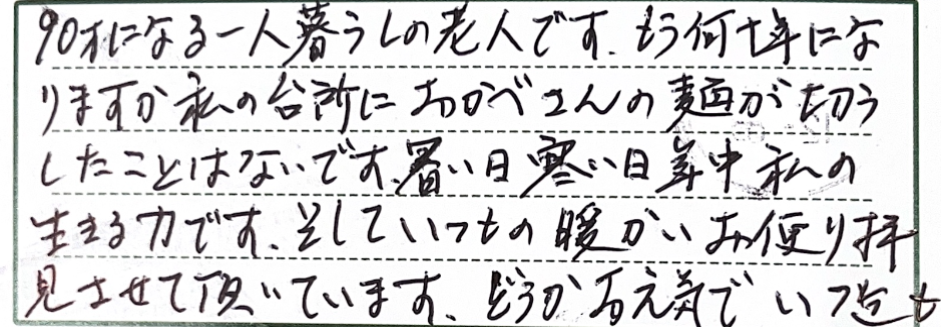 90才になる一人暮らしの老人です。もう何十年にな
りますか私の台所におかべさんの麺が切ら
したことはないです。暑い日寒い日年中私の
生きる力です。そしていつもの暖かいお便り拝
見させて頂いています。どうかお元気でいつ迄も